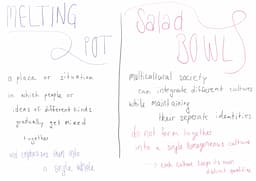 MELTING
POT
a place or situation
in which people or
ideas of different kinds
gradually get mixed
together
a single whole
Salad
BOWL
multicultural society
can integrate different cultures
while maintaining
their seperate identities
do not form together
into a single homogeneous culture
→ each culture keeps its own
distinct qualities